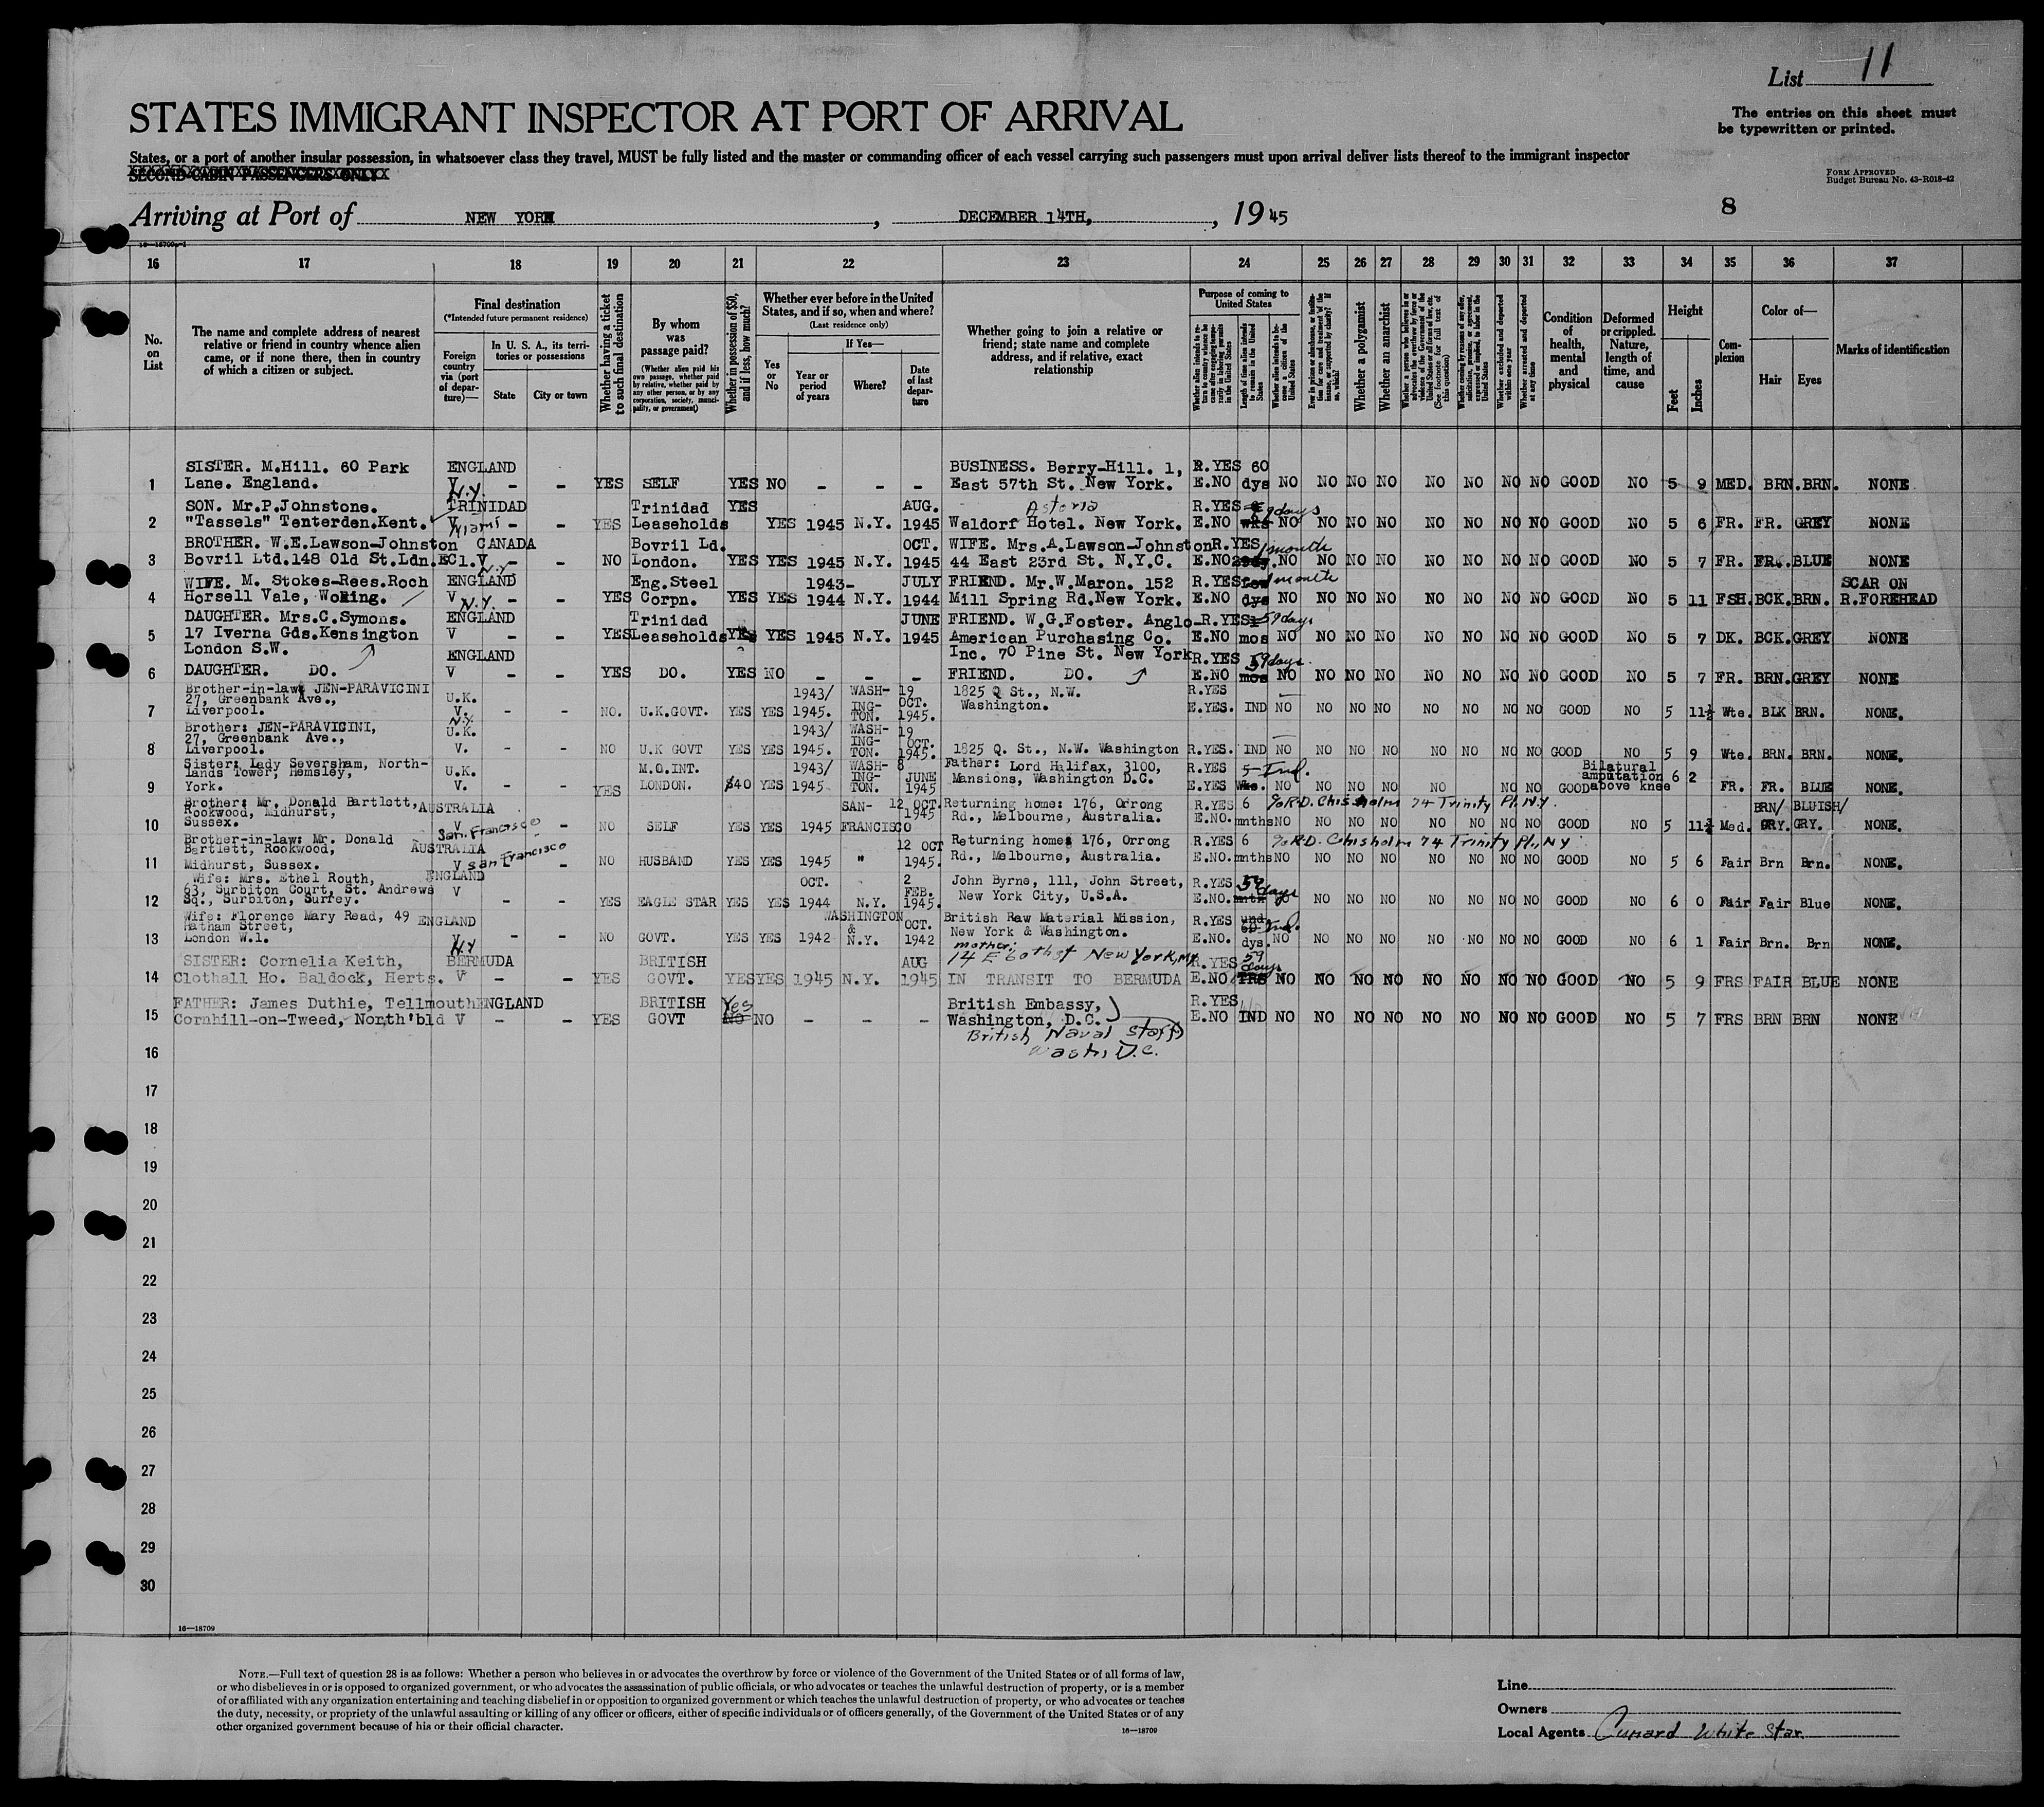 List 11
STATES IMMIGRANT INSPECTOR AT PORT OF ARRIVAL
The entries on this sheet must
be typewritten or printed.
States, or a port of another insular possession, in whatsoever class they travel, MUST be fully listed and the master or commanding officer of each vessel carrying such passengers must upon arrival deliver lists thereof to the immigrant inspector
SECOND-CABIN PASSENGERS ONLY
FORM APPROVED
Budget Bureau No. 43-R018-42
Arriving at Port of NEW YORK, DECEMBER 14TH, , 1945
8
16 17 18 19 20 21 22 23 24 25 26 27 28 29 30 31 32 33 34 35 36 37
No. on List
The name and complete address of nearest relative or friend in country whence alien came, or if none there, then in country of which a citizen or subject.
Final destination
(*Intended future permanent residence)
Foreign country via (port of departure)—
In U. S. A., its territories or possessions
State
City or town
Whether having a ticket to such final destination
By whom was passage paid?
(Whether alien paid his own passage, whether paid by relative, whether paid by any other person, or by any corporation, society, municipality, or government)
Whether in possession of $50, and if less, how much?
Whether ever before in the United States, and if so, when and where?
(Last residence only)
Yes or No
If Yes—
Year or period of years
Where?
Date of last departure
Whether going to join a relative or friend; state name and complete address, and if relative, exact relationship
Purpose of coming to United States
Length of time alien intends to remain in the United States
Whether alien intends to become a citizen of the United States
Whether a polygamist
Whether an anarchist
(See footnote for full text of this question)
Whether excluded and deported within one year
Whether arrested and deported at any time
Condition of health, mental and physical
Deformed or crippled. Nature, length of time, and cause
Height
Feet
Inches
Complexion
Color of—
Hair
Eyes
Marks of identification
SISTER. M.Hill. 60 Park ENGLAND BUSINESS. Berry-Hill. 1, R.YES 60
1 Lane. England. V - - YES SELF YES NO - - - East 57th St. New York. E.NO dys NO NO NO NO NO NO NO NO GOOD NO 5 9 MED. BRN. BRN. NONE
N.Y.
SON. Mr.P.Johnstone. TRINIDAD Trinidad YES AUG. Astoria R.YES
2 "Tassels" Tenterden.Kent. V Miami - - YES Leaseholds YES 1945 N.Y. 1945 Waldorf Hotel. New York. E.NO wks 59 days NO NO NO NO NO NO NO NO GOOD NO 5 6 FR. FR. GREY NONE
BROTHER. W.E.Lawson-Johnston CANADA Bovril Ld. OCT. WIFE. Mrs.A.Lawson-Johnston R.YES 1 month
3 Bovril Ltd.148 Old St.Ldn.EC1. V N.Y. - - NO London. YES YES 1945 N.Y. 1945 44 East 23rd St. N.Y.C. E.NO NO NO NO NO NO NO NO NO GOOD NO 5 7 FR. FR. BLUE NONE
WIFE. M. Stokes-Rees.Roch ENGLAND Eng.Steel 1943- JULY FRIEND. Mr.W.Maron. 152 R.YES few 1 month SCAR ON
4 Horsell Vale, Woking. V - - YES Corpn. YES YES 1944 N.Y. 1944 Mill Spring Rd.New York. E.NO dys NO NO NO NO NO NO NO NO GOOD NO 5 11 FSH. BCK. BRN. R.FOREHEAD
N.Y.
DAUGHTER. Mrs.C.Symons. ENGLAND Trinidad JUNE FRIEND. W.G.Foster. Anglo- R.YES 59 days
5 17 Iverna Gds.Kensington V - - YES Leaseholds YES YES 1945 N.Y. 1945 American Purchasing Co. E.NO mos NO NO NO NO NO NO NO NO GOOD NO 5 7 DK. BCK. GREY NONE
London S.W. ENGLAND Inc. 70 Pine St. New York R.YES 59 days
6 DAUGHTER. DO. V - - YES DO. YES NO - - - FRIEND. DO. E.NO mos NO NO NO NO NO NO NO NO GOOD NO 5 7 FR. BRN. GREY NONE
Brother-in-law: JEN-PARAVICINI U.K. 1943/ WASH- 19 1825 Q St., N.W. R.YES
27, Greenbank Ave., ING- OCT. Washington.
7 Liverpool. V. - - NO. U.K.GOVT. YES YES 1945. TON. 1945. E.YES. IND NO NO NO NO NO NO NO NO GOOD NO 5 11½ Wte. BLK BRN. NONE.
N.Y.
Brother: JEN-PARAVICINI, U.K. 1943/ WASH- 19
27, Greenbank Ave., ING- OCT.
8 Liverpool. V. - - NO U.K GOVT YES YES 1945. TON. 1945. 1825 Q. St., N.W. Washington R.YES. IND NO NO NO NO NO NO NO NO GOOD NO 5 9 Wte. BRN. BRN. NONE.
Sister: Lady Seversham, North- U.K. M.O.INT. 1943/ WASH- 8 Father: Lord Halifax, 3100, R.YES 5 Ind. Bilatural
lands Tower, Hemsley, ING- JUNE Mansions, Washington D.C. amputation
9 York. V. - - YES LONDON. $40 YES 1945 TON. 1945 E.YES Wke. NO NO NO NO NO NO NO NO GOOD above knee 6 2 FR. FR. BLUE NONE.
Brother: Mr. Donald Bartlett, AUSTRALIA SAN- 12 OCT. Returning home: 176, Orrong R.YES. 6 c/o R.D. Chisholm 74 Trinity Pl. N.Y. BRN/ BLUISH/
Rookwood, Midhurst, 1945 Rd., Melbourne, Australia.
10 Sussex. V San Francisco - NO SELF YES YES 1945 FRANCISCO E.NO. mnths NO NO NO NO NO NO NO NO GOOD NO 5 11½ Med. GRY. GRY. NONE.
Brother-in-law: Mr. Donald AUSTRALIA 12 OCT Returning home: 176, Orrong R.YES 6 c/o R.D. Chisholm 74 Trinity Pl., N.Y.
Bartlett, Rookwood,
11 Midhurst, Sussex. V San Francisco - NO HUSBAND YES YES 1945 " 1945. Rd., Melbourne, Australia. E.NO. mnths NO NO NO NO NO NO NO NO GOOD NO 5 6 Fair Brn Brn. NONE.
Wife: Mrs. Ethel Routh, ENGLAND OCT. 2 John Byrne, 111, John Street, R.YES 59
63, Surbiton Court, St. Andrews V FEB. New York City, U.S.A. days
12 Sq., Surbiton, Surrey. - - YES EAGLE STAR YES YES 1944 N.Y. 1945. E.NO. mnth NO NO NO NO NO NO NO NO GOOD NO 6 0 Fair Fair Blue NONE.
Wife: Florence Mary Read, 49 ENGLAND WASHINGTON OCT. British Raw Material Mission, R.YES und Ind.
Hatham Street, & New York & Washington. 60
13 London W.1. V - - NO GOVT. YES YES 1942 N.Y. 1942 E.NO. dys. NO NO NO NO NO NO NO NO GOOD NO 6 1 Fair Brn. Brn NONE.
N.Y. mother: 14 E 60th st New York, NY
SISTER: Cornelia Keith, BERMUDA BRITISH AUG R.YES 59 days
14 Clothall Ho. Baldock, Herts. V - - YES GOVT. YES YES 1945 N.Y. 1945 IN TRANSIT TO BERMUDA E.NO TRS NO NO NO NO NO NO NO NO GOOD NO 5 9 FRS FAIR BLUE NONE
FATHER: James Duthie, Tellmouth ENGLAND BRITISH Yes British Embassy, R.YES
15 Cornhill-on-Tweed, North'bld V - - YES GOVT NO NO - - - Washington, D.C. E.NO IND NO NO NO NO NO NO NO NO GOOD NO 5 7 FRS BRN BRN NONE
British Naval Staff
Wash, D.C.
16
17
18
19
20
21
22
23
24
25
26
27
28
29
30
16—18709
NOTE.—Full text of question 28 is as follows: Whether a person who believes in or advocates the overthrow by force or violence of the Government of the United States or of all forms of law,
or who disbelieves in or is opposed to organized government, or who advocates the assassination of public officials, or who advocates or teaches the unlawful destruction of property, or is a member
of or affiliated with any organization entertaining and teaching disbelief in or opposition to organized government or which teaches the unlawful destruction of property, or who advocates or teaches
the duty, necessity, or propriety of the unlawful assaulting or killing of any officer or officers, either of specific individuals or of officers generally, of the Government of the United States or of any
other organized government because of his or their official character.
16—18709
Line
Owners
Local Agents Cunard White Star